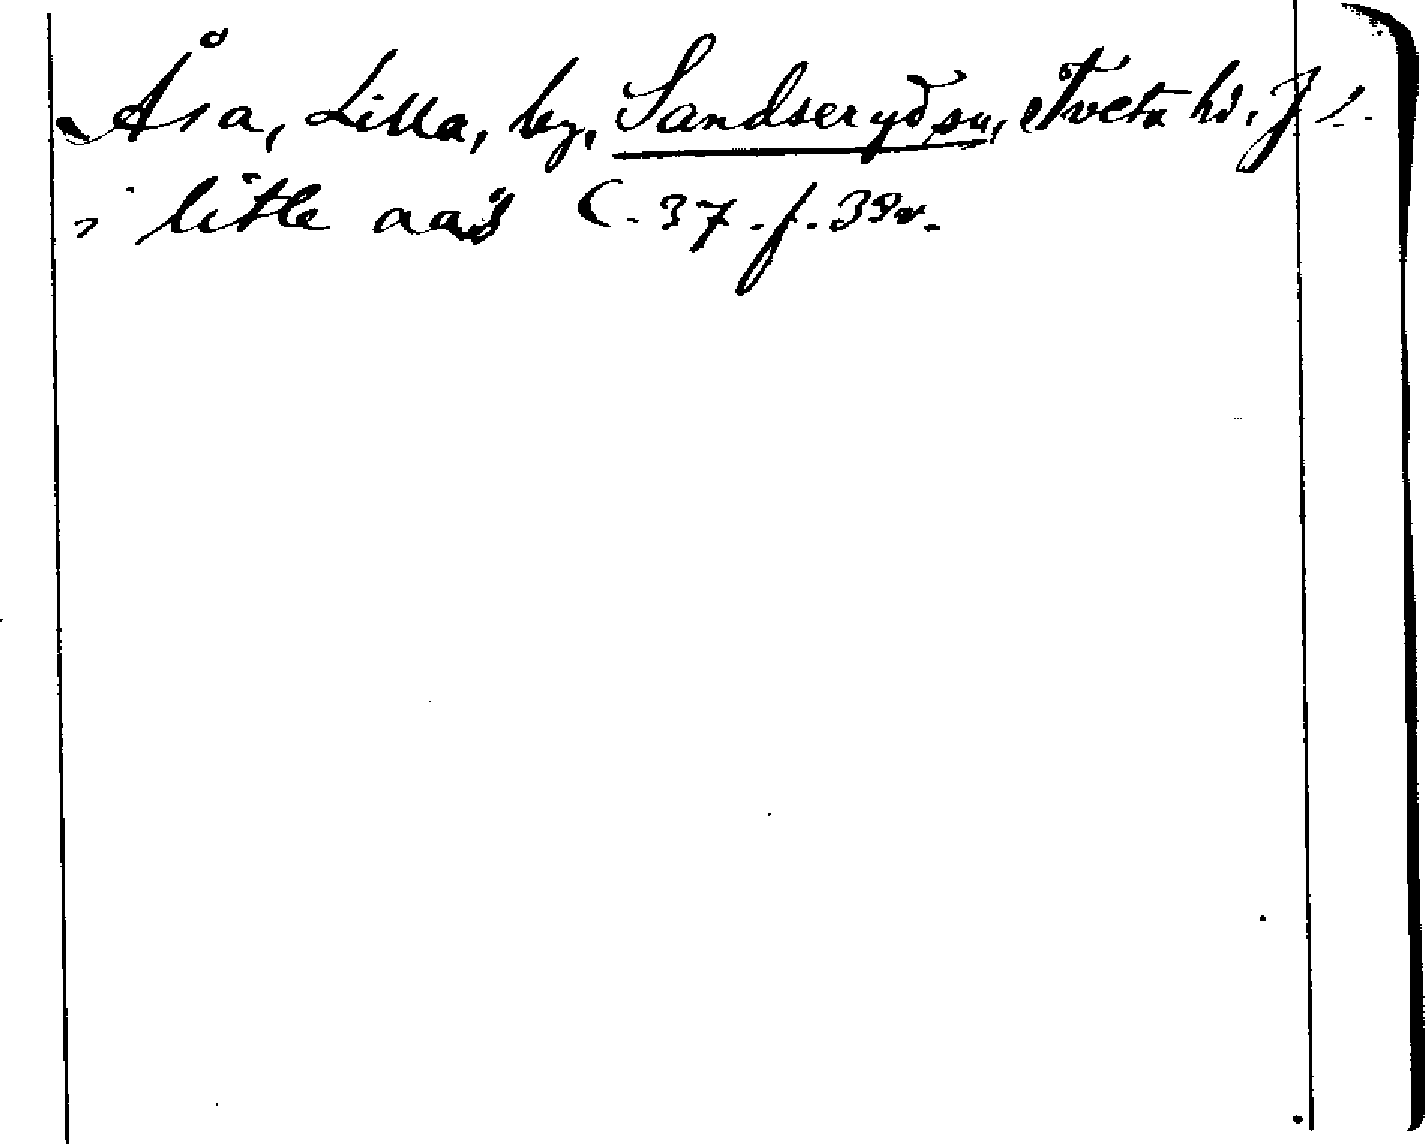 Åsa, Lilla, by, Sandseryd sn, Tveta hd. J. l.
i litle aas C. 37. f. 39v.